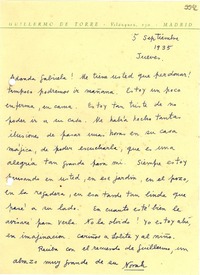 GUILLERMO DE TORRE - Velázquez, - MADRID
5 septiembre
1935
Jueves.
Gabriela! Me tiene usted que perdonar!
Tampoco podremos ir mañana. Estoy un poco
enferma, en cama. Estoy tan triste de no
poder ir a su lado. Me había hecho tantas
ilusiones, de pasar unas horas en su casa
mágica, de poder escucharla, que es una
alegría tan grande para mí. Siempre estoy
pensando en usted, en ese jardín, en el pozo,
en la regadera, en esa tarde tan linda que
pasé a su lado. En cuanto esté bien la
avisaré para verla. No la olvido! Yo estoy ahí,
en imaginación cariños a Lolita y al niño.
Reciba con el recuerdo de Guillermo, un
abrazo muy grande de su Norah